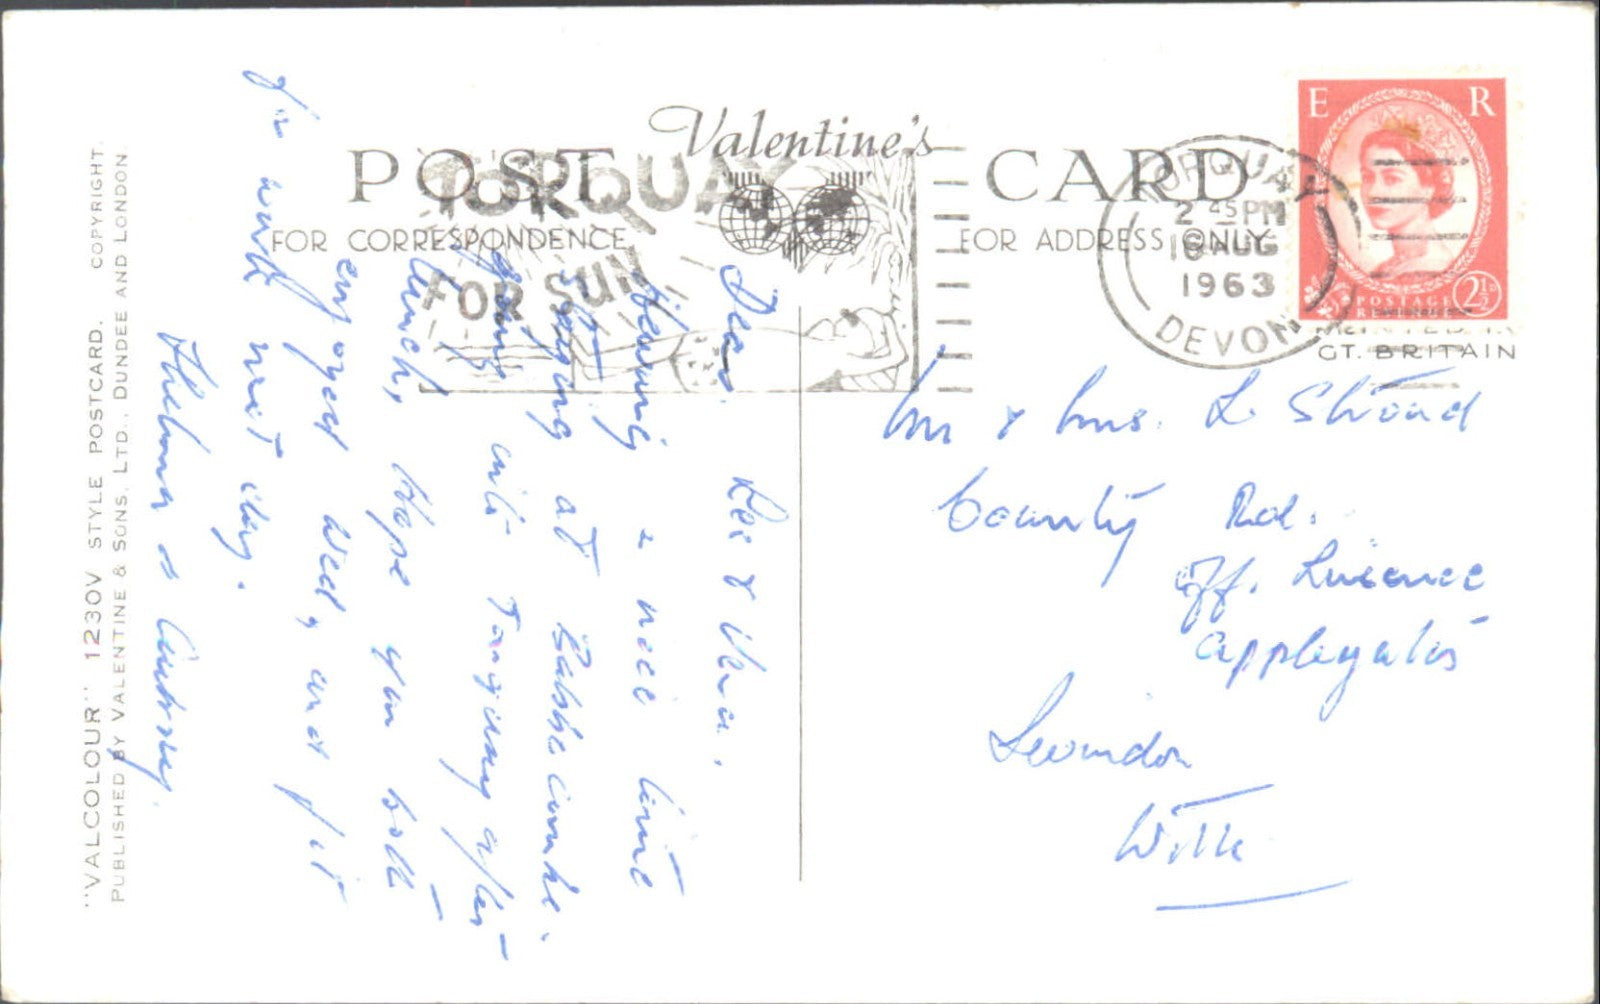 Valentine's
POST CARD
FOR CORRESPONDENCE
FOR ADDRESS ONLY
TORQUAY
FOR SUN
TORQUAY
2 45 PM
AUG
1963
DEVON
E R
POSTAGE
2½
PRINTED IN
GT. BRITAIN
Dear Les & Vera,
Having a nice time
staying at Babbacombe.
going into Torquay after
lunch, Hope you both
enjoyed Weed, and fit
for work next day.
Thelma & Audrey.
Mr & Mrs. L Stroud
County Rd.
Off. Lisence
Applegates
Swindon
Wilts
"VALCOLOUR" 1230V STYLE POSTCARD. COPYRIGHT.
PUBLISHED BY VALENTINE & SONS, LTD., DUNDEE AND LONDON.